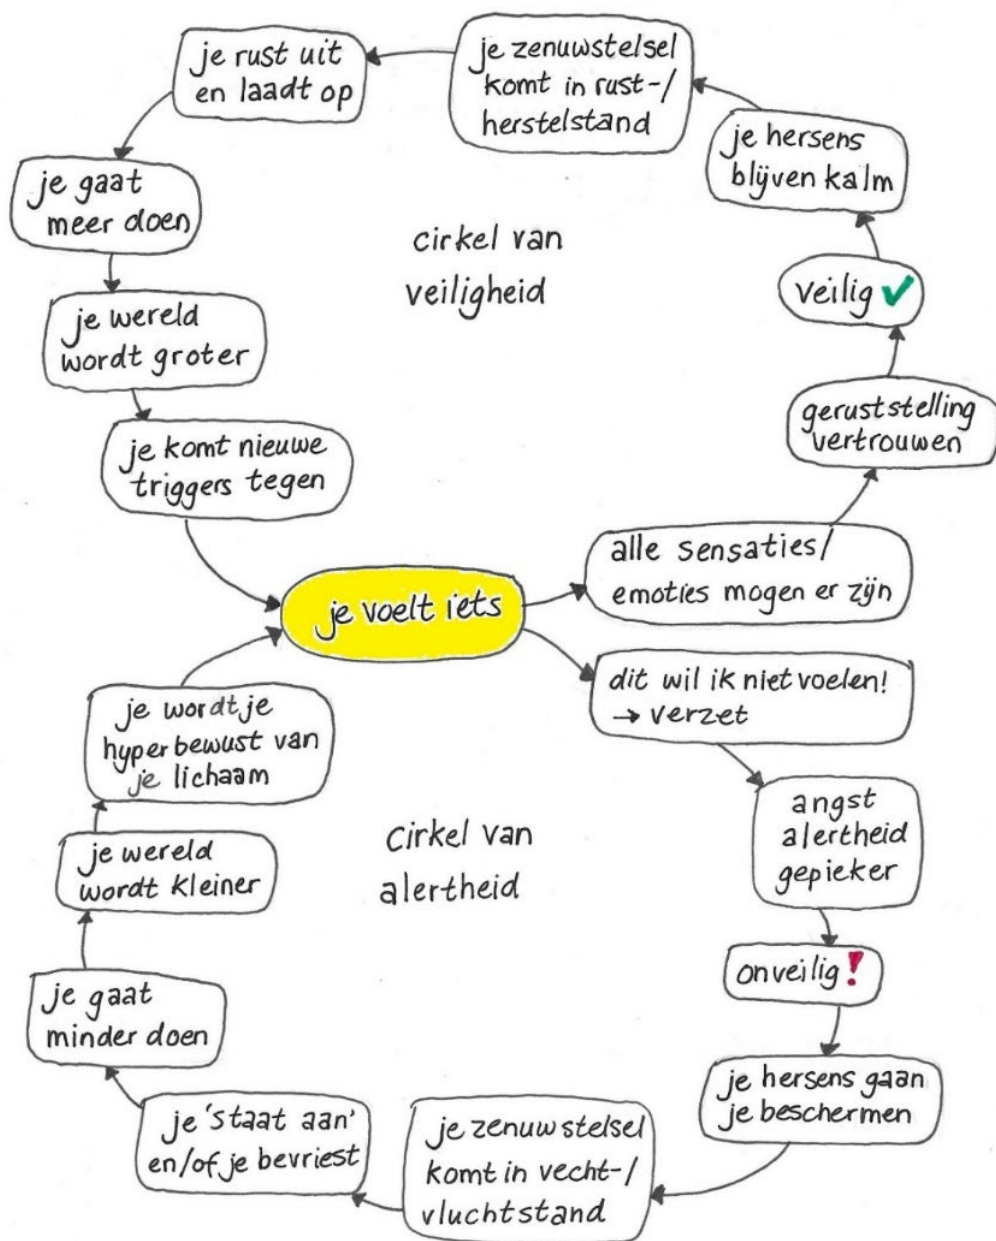 je voelt iets
alle sensaties/
emoties mogen er zijn
geruststelling
vertrouwen
veilig ✓
je hersens
blijven kalm
je zenuwstelsel
komt in rust-/
herstelstand
je rust uit
en laadt op
je gaat
meer doen
je wereld
wordt groter
je komt nieuwe
triggers tegen
cirkel van
veiligheid
dit wil ik niet voelen!
→ verzet
angst
alertheid
gepieker
onveilig!
je hersens gaan
je beschermen
je zenuwstelsel
komt in vecht-/
vluchtstand
je 'staat aan'
en/of je bevriest
je gaat
minder doen
je wereld
wordt kleiner
je wordt je
hyperbewust van
je lichaam
cirkel van
alertheid